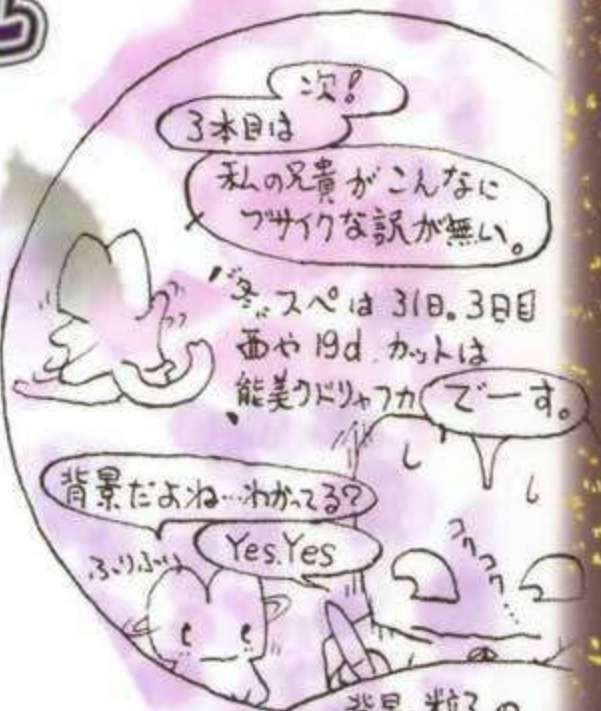 次!
3本目は
私の兄貴がこんなに
ブサイクな訳が無い。
"冬"スペは31日。3日目
西や19d カットは
能美クドリャフカ
でーす。
背景だよね…わかってる?
Yes.Yes
ふりふり
コクコク…
背景、粒子の